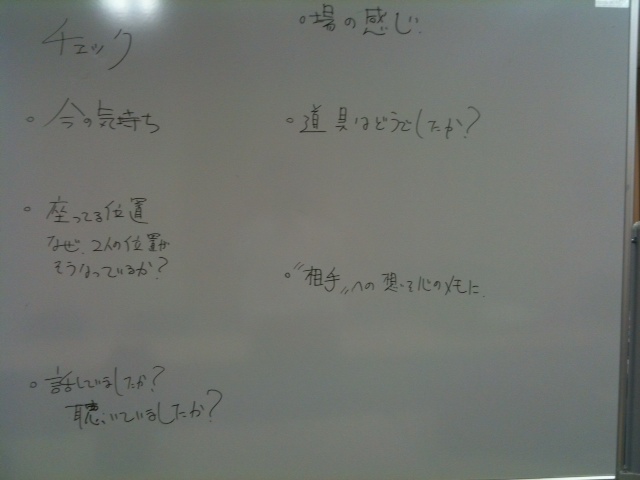 チェック
○今の気持ち
○座ってる位置
なぜ、2人の位置が
そうなっているか?
○話していましたか?
聴いていましたか?
○場の感じ
○道具はどうでしたか?
○"相手"への想いを心のメモに